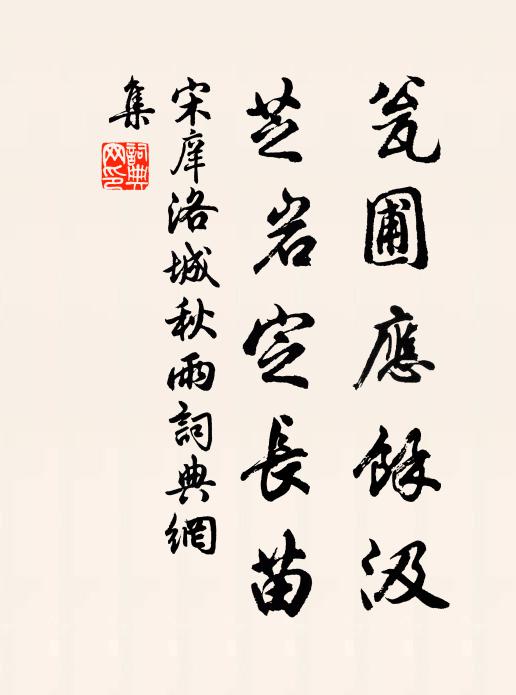 瓮圃應餘汲
芝岩定長苗
宋庠洛城秋雨詞典網
集
詞典
网印